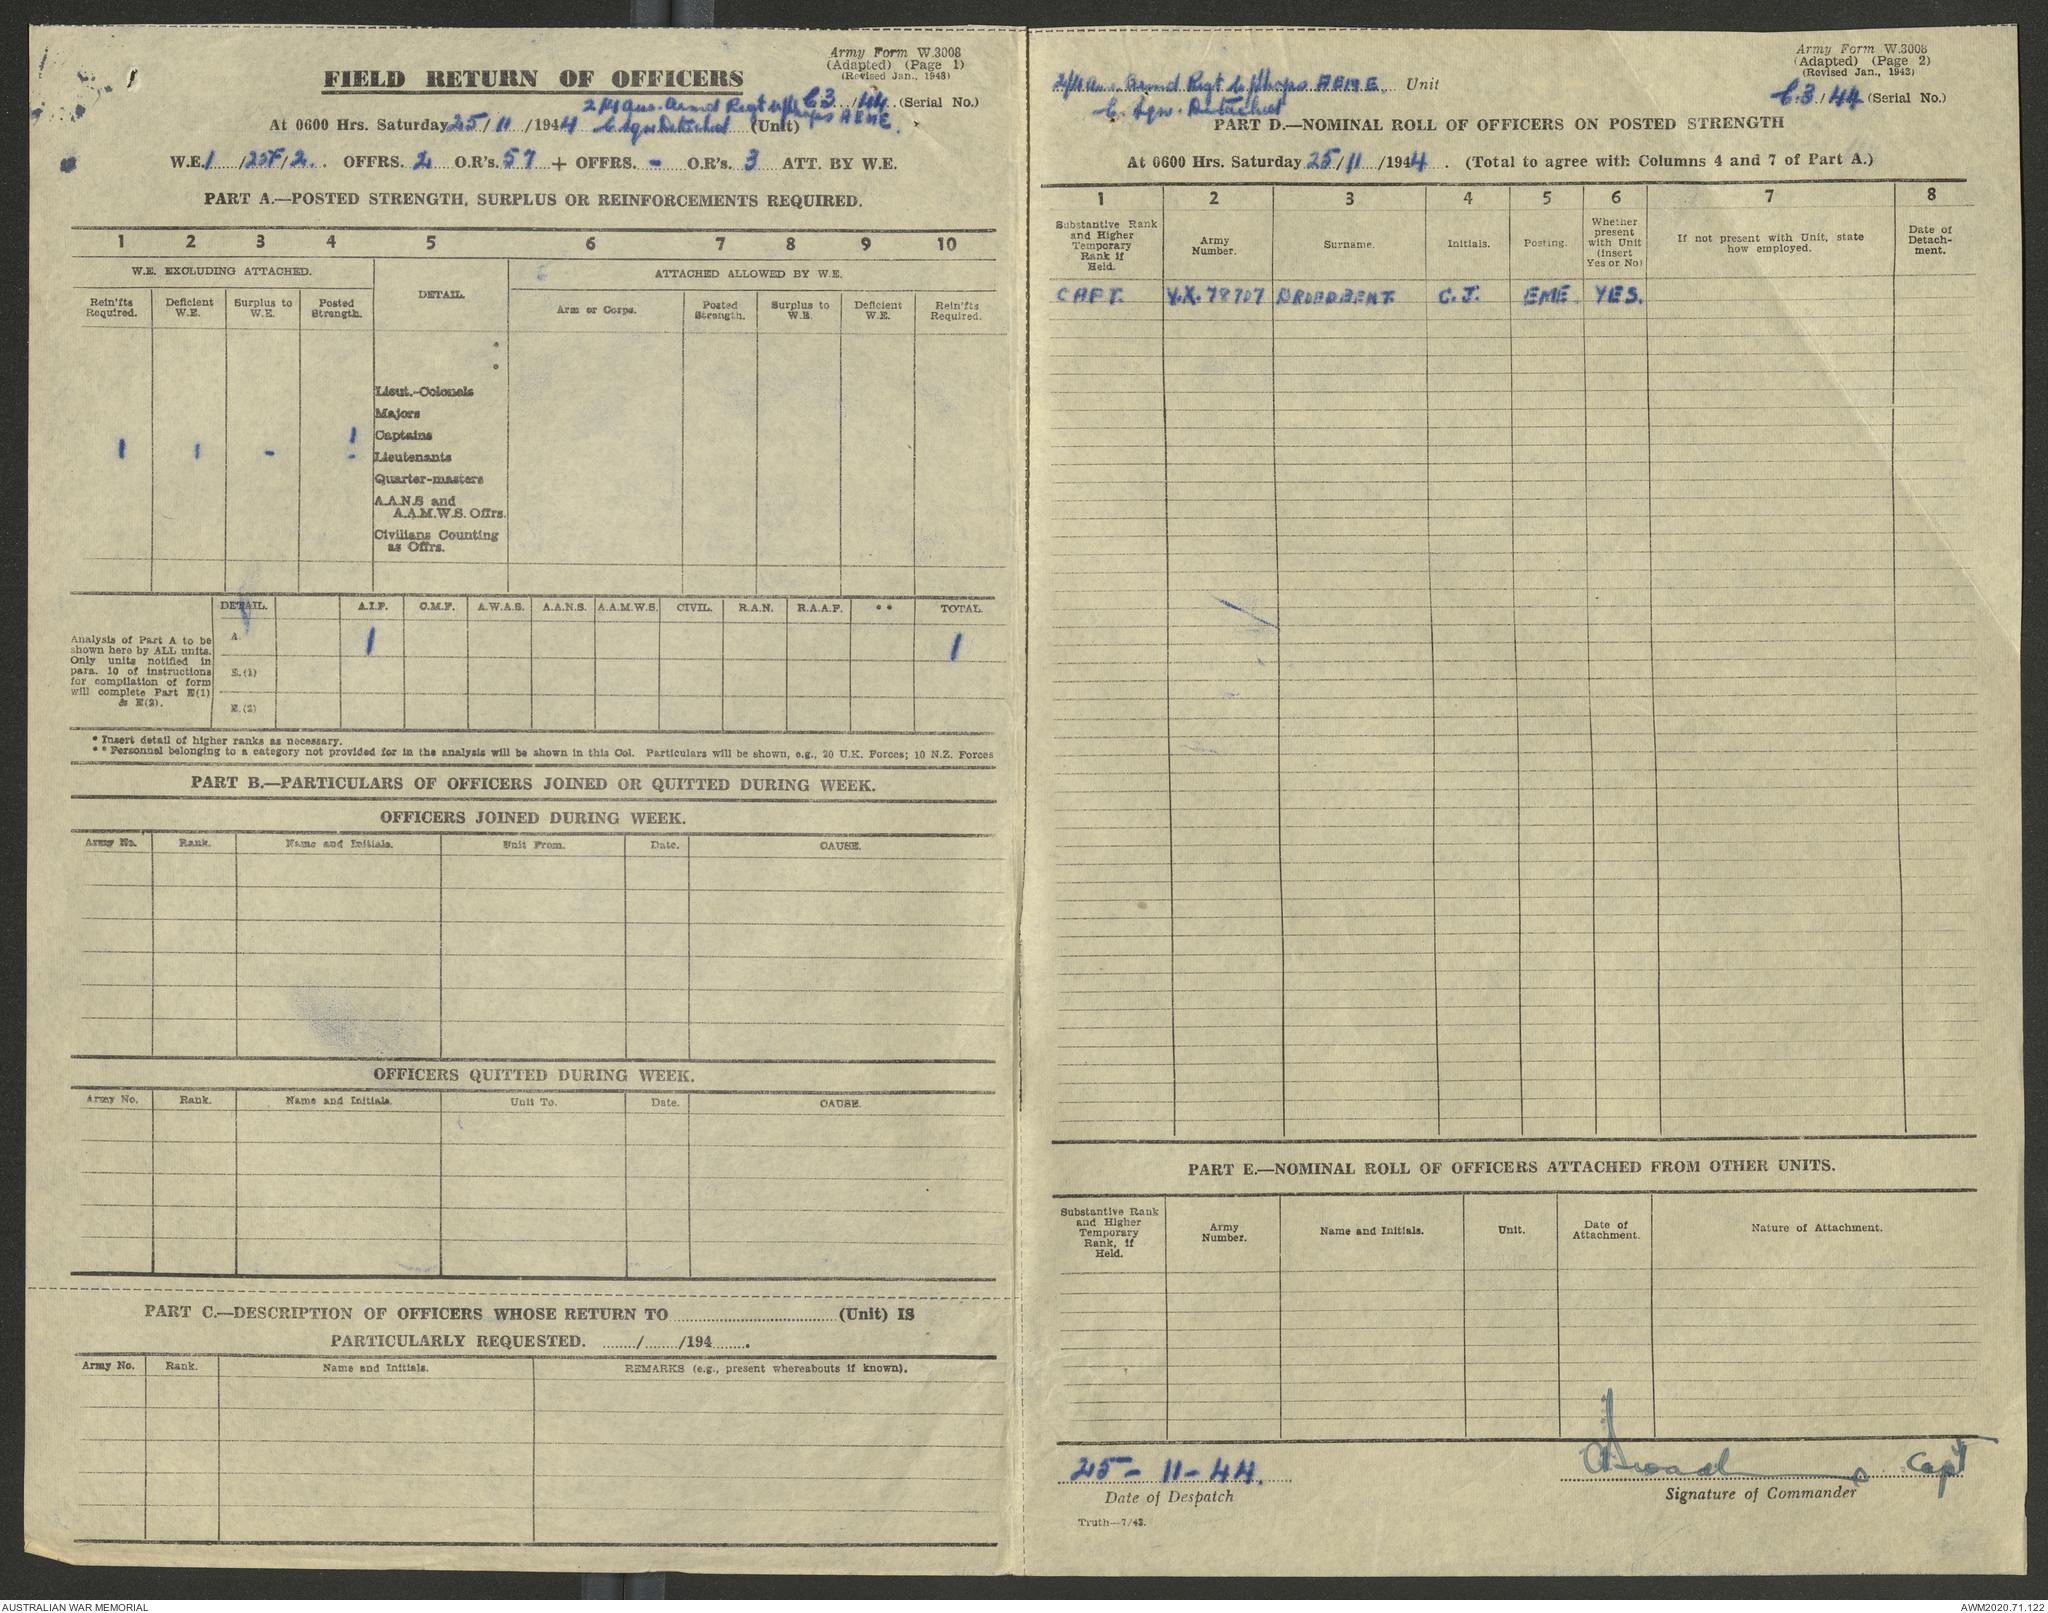 Army Form W.3008
(Adapted) (Page 1)
(Revised Jan., 1943)
FIELD RETURN OF OFFICERS
C.3/44 (Serial No.)
At 0600 Hrs. Saturday 25/11/1944 2/4 Aus. Armd Regt W/Shops AEME. C Sqn Detached (Unit)
W.E. 1/25F/2. OFFRS. 2 O.R's. 57 + OFFRS. - O.R's. 3 ATT. BY W.E.
PART A.—POSTED STRENGTH, SURPLUS OR REINFORCEMENTS REQUIRED.
1 2 3 4 5 6 7 8 9 10
W.E. EXCLUDING ATTACHED. DETAIL. ATTACHED ALLOWED BY W.E.
Rein'fts Required. Deficient W.E. Surplus to W.E. Posted Strength. Arm or Corps. Posted Strength. Surplus to W.E. Deficient W.E. Rein'fts Required.
*
*
Lieut.-Colonels
Majors
1 Captains
1 1 - - Lieutenants
Quarter-masters
A.A.N.S and
A.A.M.W.S. Offrs.
Civilians Counting
as Offrs.
DETAIL. A.I.F. C.M.F. A.W.A.S. A.A.N.S. A.A.M.W.S. CIVIL. R.A.N. R.A.A.F. ** TOTAL.
Analysis of Part A to be
shown here by ALL units.
Only units notified in
para. 10 of instructions
for compilation of form
will complete Part E(1)
& E(2).
A. 1 1
E.(1)
E.(2)
* Insert detail of higher ranks as necessary.
** Personnel belonging to a category not provided for in the analysis will be shown in this Col. Particulars will be shown, e.g., 20 U.K. Forces; 10 N.Z. Forces
PART B.—PARTICULARS OF OFFICERS JOINED OR QUITTED DURING WEEK.
OFFICERS JOINED DURING WEEK.
Army No. Rank. Name and Initials. Unit From. Date. CAUSE.
OFFICERS QUITTED DURING WEEK.
Army No. Rank. Name and Initials. Unit To. Date. CAUSE.
PART C.—DESCRIPTION OF OFFICERS WHOSE RETURN TO (Unit) IS
PARTICULARLY REQUESTED. ......../......../194........
Army No. Rank. Name and Initials. REMARKS (e.g., present whereabouts if known).
Army Form W.3008
(Adapted) (Page 2)
(Revised Jan., 1943)
2/4 Aus. Armd Regt W/Shops AEME. Unit
C.3/44 (Serial No.)
C. Sqn. Detached
PART D.—NOMINAL ROLL OF OFFICERS ON POSTED STRENGTH
At 0600 Hrs. Saturday 25/11/1944. (Total to agree with Columns 4 and 7 of Part A.)
1 2 3 4 5 6 7 8
Substantive Rank and Higher Temporary Rank if Held. Army Number. Surname. Initials. Posting. Whether present with Unit (insert Yes or No) If not present with Unit, state how employed. Date of Detach-ment.
CAPT. V.X. 78707 BROADBENT. C.J. EME. YES.
PART E.—NOMINAL ROLL OF OFFICERS ATTACHED FROM OTHER UNITS.
Substantive Rank and Higher Temporary Rank, if Held. Army Number. Name and Initials. Unit. Date of Attachment. Nature of Attachment.
25-11-44. Capt
Date of Despatch Signature of Commander
Truth—7/43.
AUSTRALIAN WAR MEMORIAL AWM2020.71.122